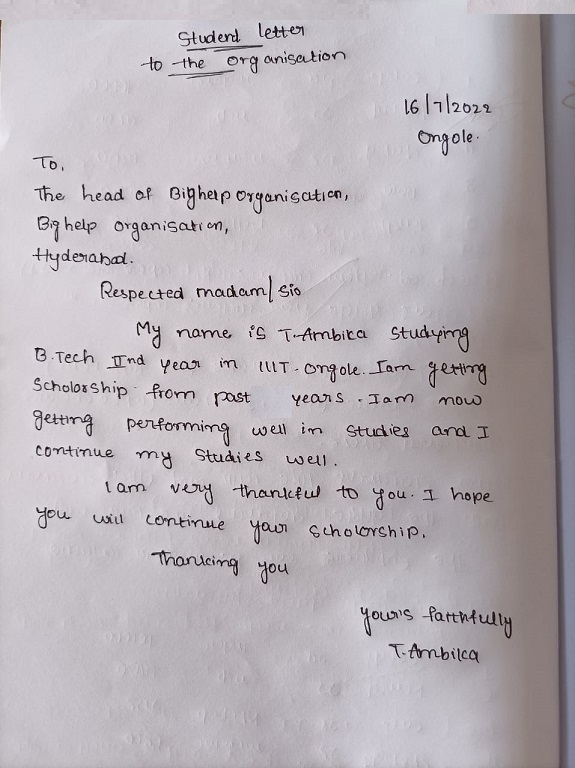 Student letter
to the organisation
16/7/2022
Ongole.
To,
The head of Bighelp organisation,
Big help organisation,
Hyderabad.
Respected madam/ sir
My name is T-Ambika studying
B.Tech IInd year in IIIT-Ongole. Iam getting
Scholorship from past years. Iam now
getting performing well in studies and I
continue my studies well.
I am very thankful to you. I hope
you will continue your scholorship.
Thanking you
your's faithfully
T-Ambika